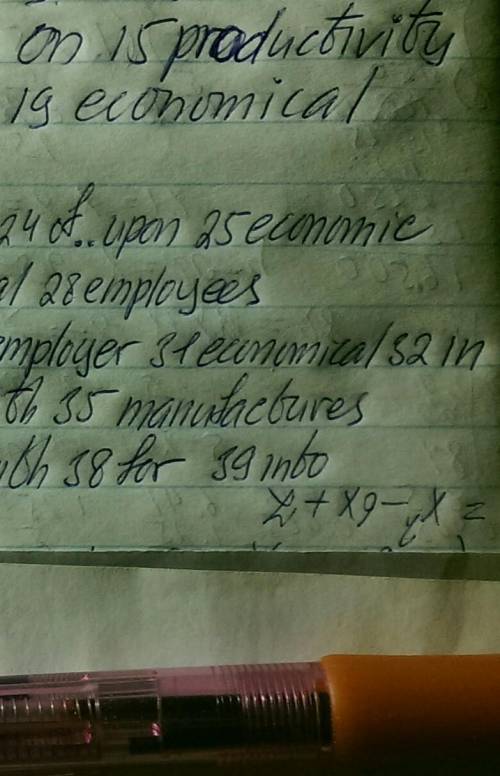 on 15 productivity
19 economical
24 of.. upon 25 economic
al 28 employees
employer 31 economical 32 in
th 35 manufactures
ith 38 for 39 into